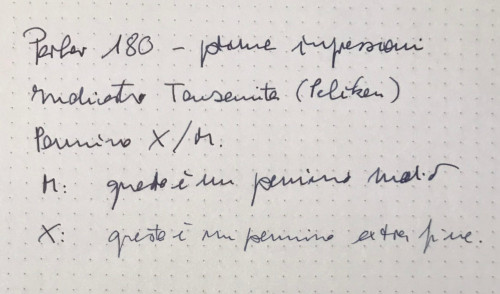 Parker 180 - prime impressioni
Inchiostro Tansanite (Pelikan)
Pennino X/M.
M: questo è un pennino medio
X: questo è un pennino extra fine.